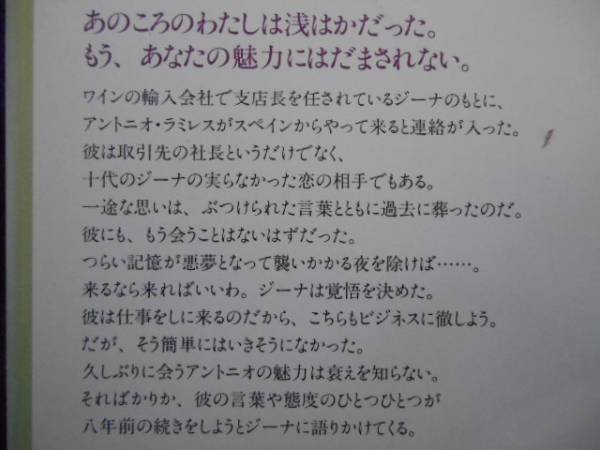 あのころのわたしは浅はかだった。
もう、あなたの魅力にはだまされない。
ワインの輸入会社で支店長を任されているジーナのもとに、
アントニオ・ラミレスがスペインからやって来ると連絡が入った。
彼は取引先の社長というだけでなく、
十代のジーナの実らなかった恋の相手でもある。
一途な思いは、ぶつけられた言葉とともに過去に葬ったのだ。
彼にも、もう会うことはないはずだった。
つらい記憶が悪夢となって襲いかかる夜を除けば……。
来るなら来ればいいわ。ジーナは覚悟を決めた。
彼は仕事をしに来るのだから、こちらもビジネスに徹しよう。
だが、そう簡単にはいきそうになかった。
久しぶりに会うアントニオの魅力は衰えを知らない。
そればかりか、彼の言葉や態度のひとつひとつが
八年前の続きをしようとジーナに語りかけてくる。